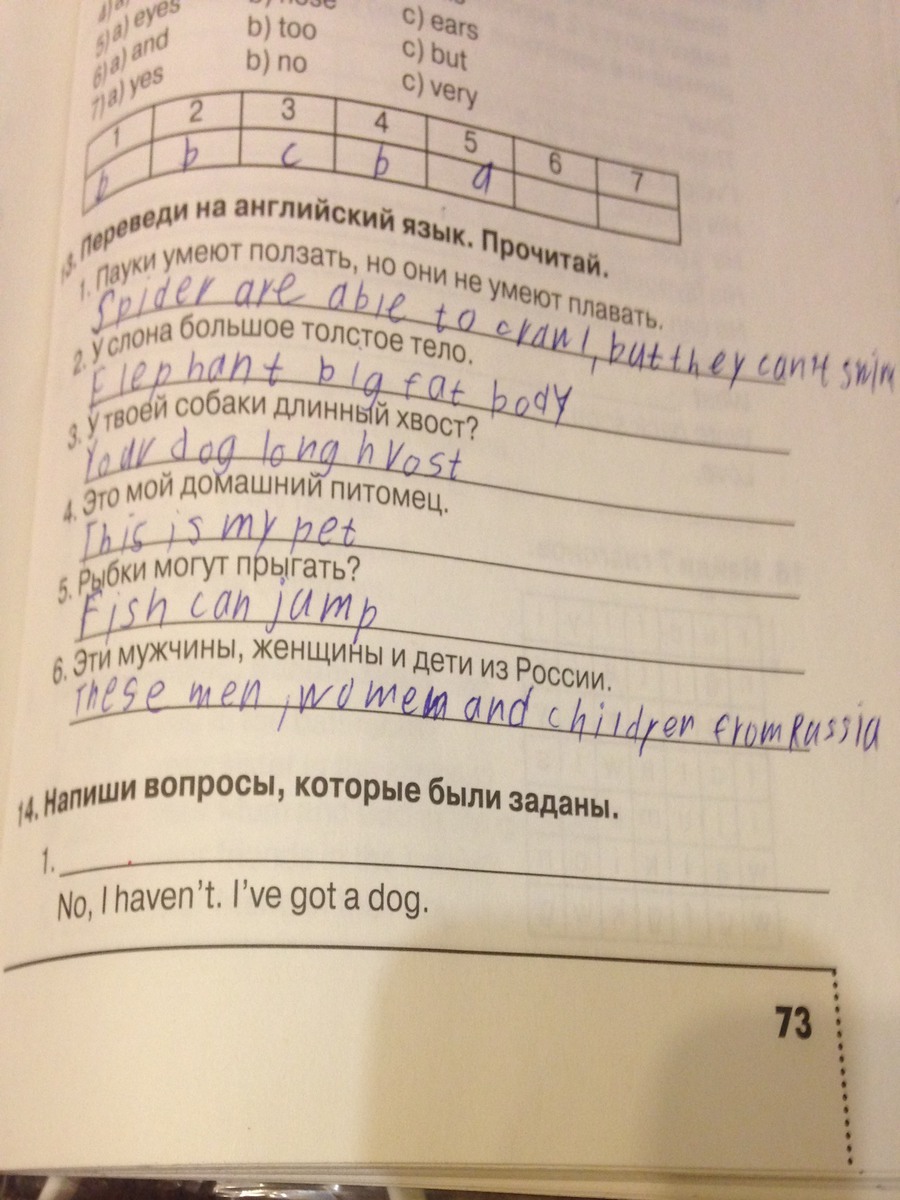 5) a) eyes b) nose c) ears
6) a) and b) too c) but
7) a) yes b) no c) very
1 2 3 4 5 6 7
b b c b a
13. Переведи на английский язык. Прочитай.
1. Пауки умеют ползать, но они не умеют плавать.
Spider are able to cranl, but they can't swim
2. У слона большое толстое тело.
Elephant big fat body
3. У твоей собаки длинный хвост?
Your dog long hvost
4. Это мой домашний питомец.
This is my pet
5. Рыбки могут прыгать?
Fish can jump
6. Эти мужчины, женщины и дети из России.
These men, women and children from Russia
14. Напиши вопросы, которые были заданы.
1.
No, I haven't. I've got a dog.
73